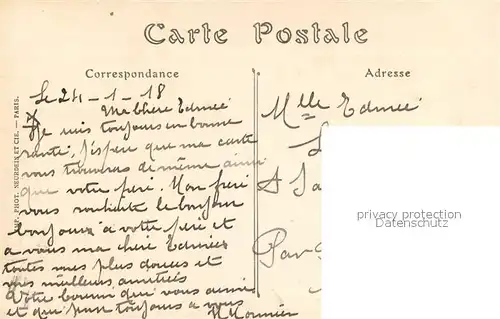 Carte Postale
Correspondance
Adresse
Le 24-1-18
Ma chère Edmée
Je suis toujours en bonne
santé, j'espère que ma carte
vous trouvera de même ainsi
que votre père. Mon frère
vous souhaite le bonjour
bonjour à votre père et
a vous ma chère Edmée
toutes mes plus douces et
mes meilleurs amitiés
Votre cousin qui vous aime
et qui pense toujours a vous
H Mounier
Mlle Edmée
L
A Sa
Par
privacy protection
Datenschutz
PHOT. NEURDEIN ET CIE. — PARIS.